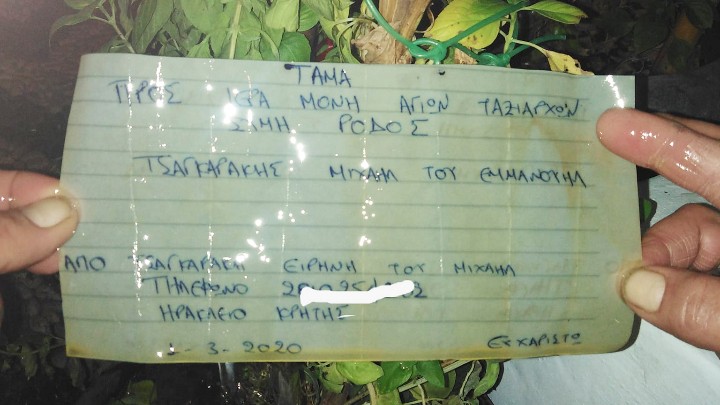 ΤΑΜΑ
ΠΡΟΣ ΙΕΡΑ ΜΟΝΗ ΑΓΙΩΝ ΤΑΞΙΑΡΧΩΝ
ΣΙΜΗ ΡΟΔΟΣ
ΤΣΑΓΚΑΡΑΚΗΣ ΜΙΧΑΗΛ ΤΟΥ ΕΜΜΑΝΟΥΗΛ
ΑΠΟ ΤΣΑΓΚΑΡΑΚΗ ΕΙΡΗΝΗ ΤΟΥ ΜΙΧΑΗΛ
ΤΗΛΕΦΩΝΟ
ΗΡΑΚΛΕΙΟ ΚΡΗΤΗΣ
-3-2020 ΕΥΧΑΡΙΣΤΩ